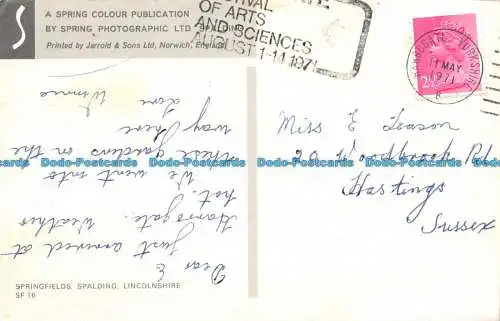 A SPRING COLOUR PUBLICATION
BY SPRING PHOTOGRAPHIC LTD SPALDING
Printed by Jarrold & Sons Ltd, Norwich, England
OF ARTS
AND SCIENCES
AUGUST 1-11.1971
HARROGATE YORKSHIRE
11 MAY
1971
2½
Dear E
Just arrived at
Harrogate. Weather
hot.
We went into
these gardens on the
way here
love
Winnie
Miss E Leason
20 Woodbrook Rd
Hastings
Sussex
SPRINGFIELDS, SPALDING, LINCOLNSHIRE
SF 16
Dodo-Postcards Dodo-Postcards Dodo-Postcards Dodo-Postcards Dodo-Postcards